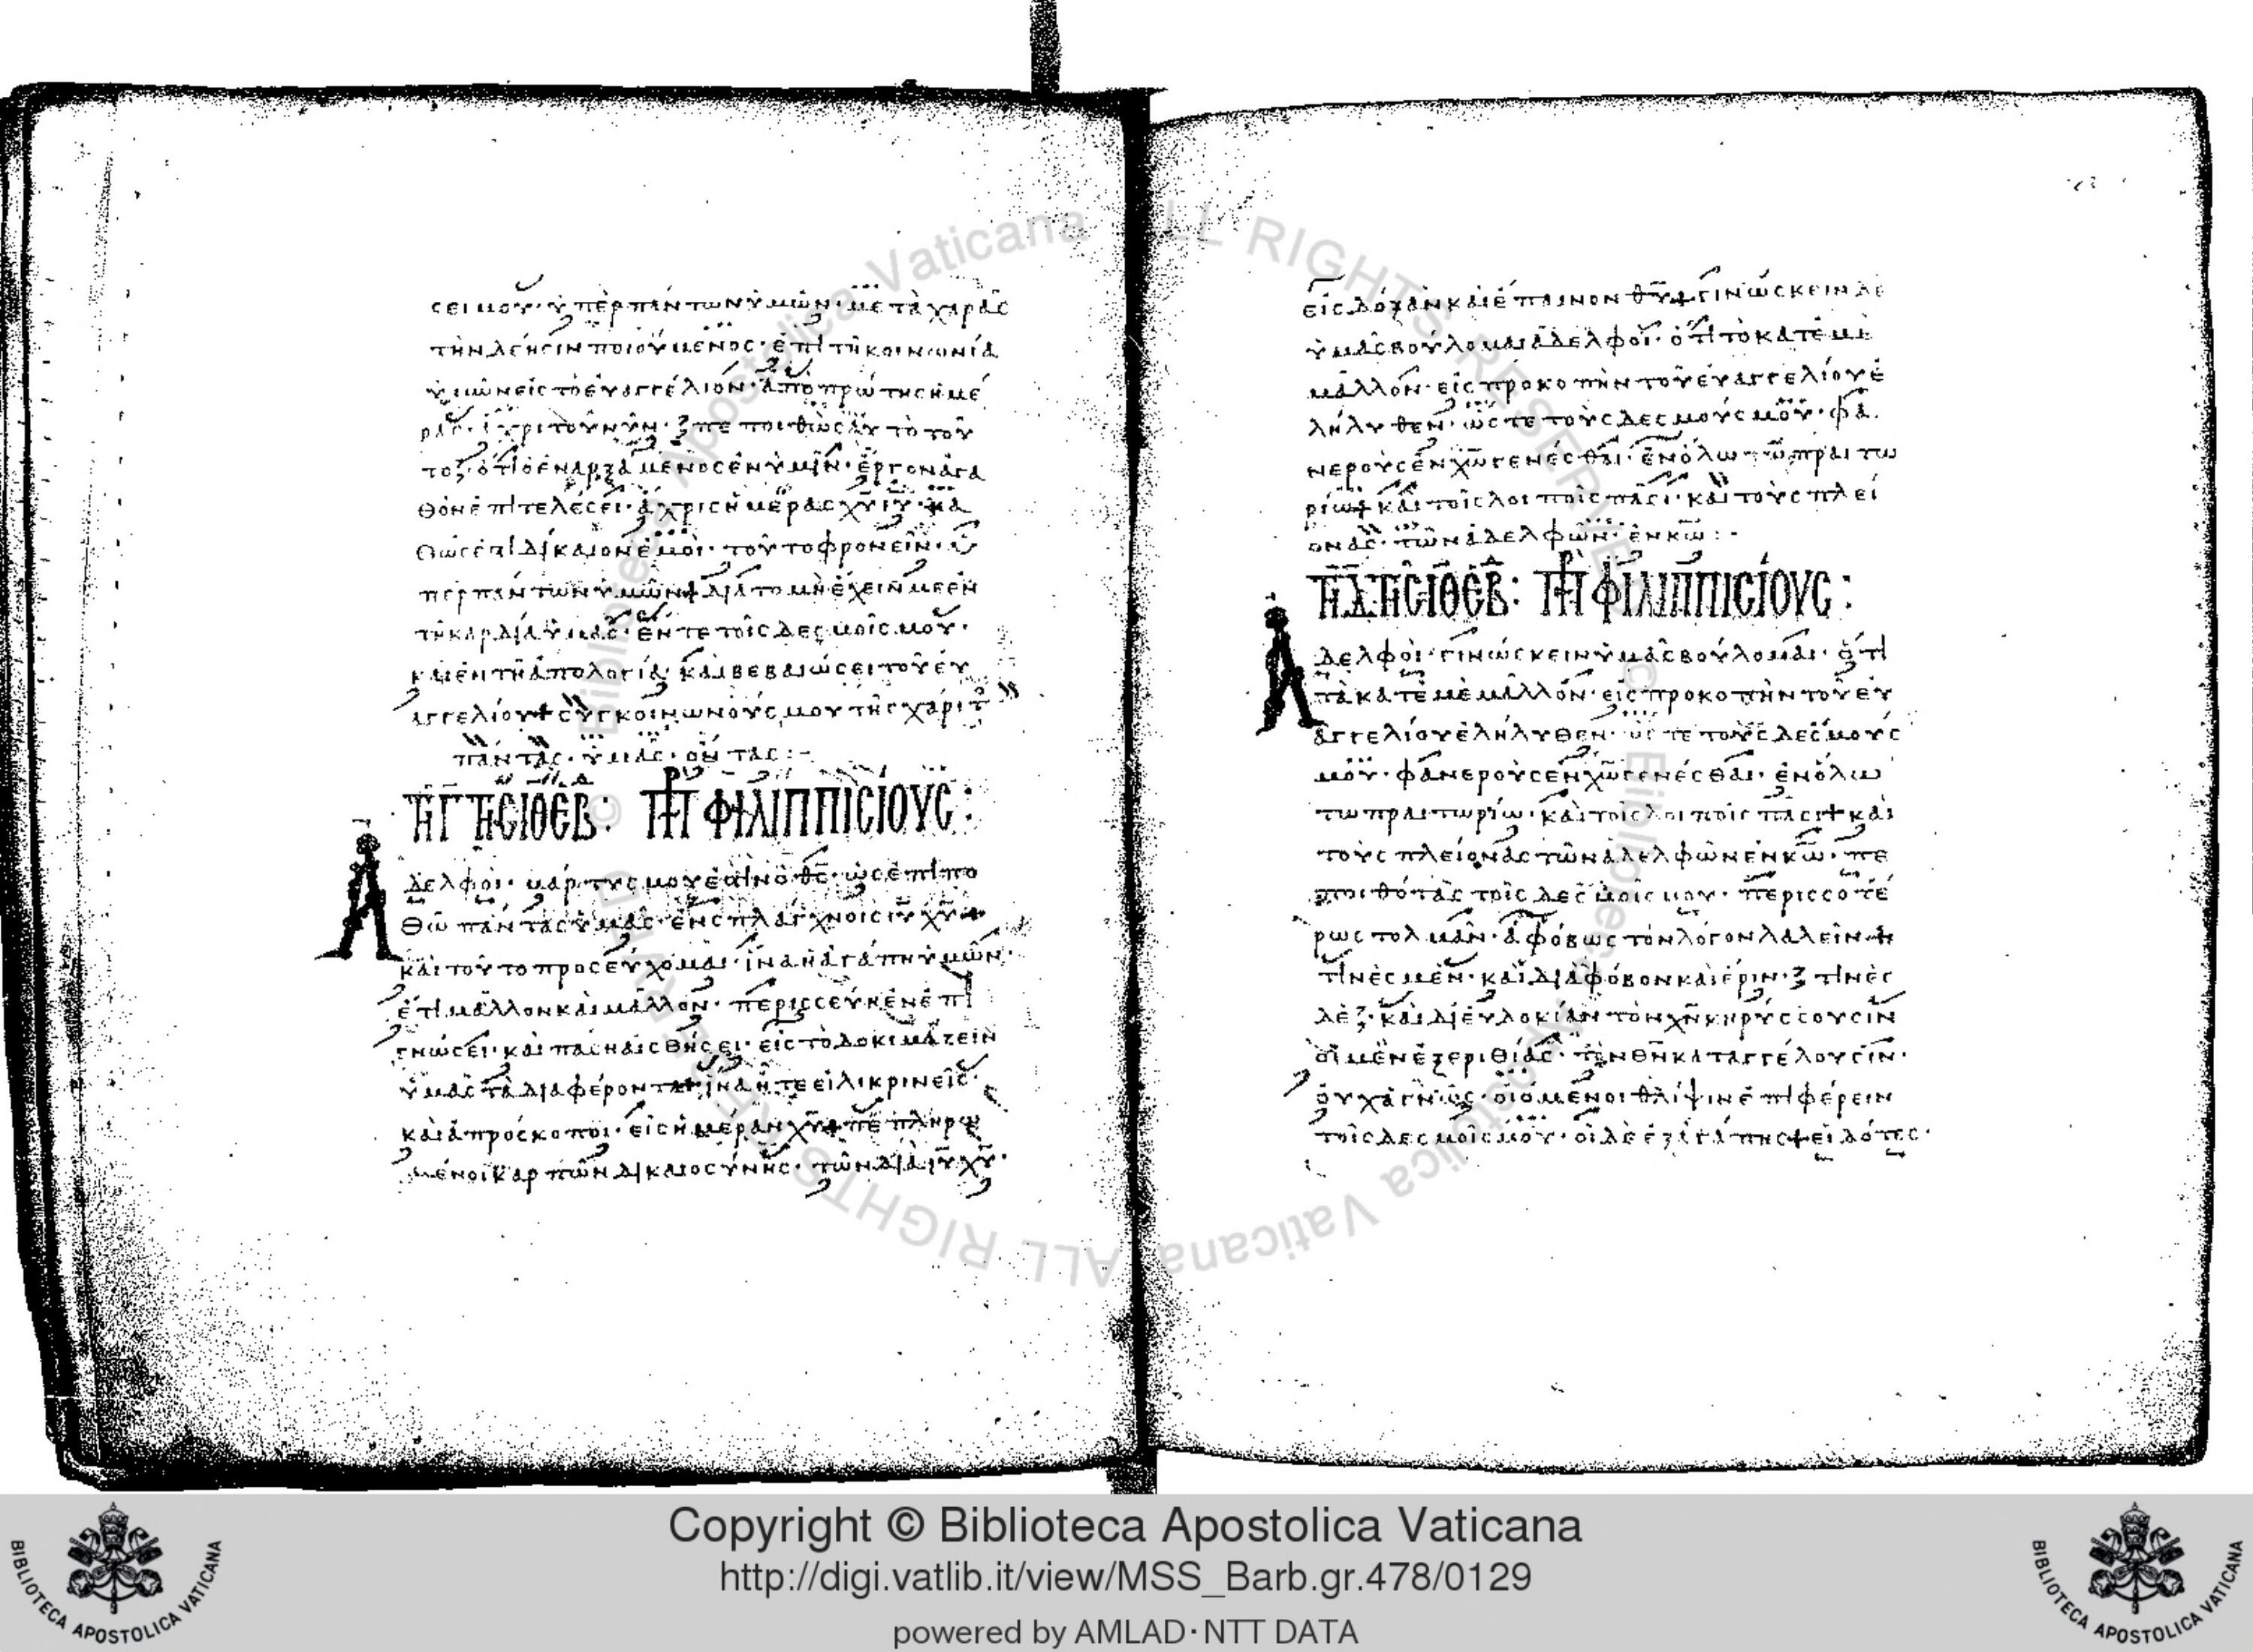 σει μου· ὑπὲρ πάντων ὑμῶν· μετὰ χαρᾶς
τὴν δέησιν ποιούμενος· ἐπὶ τῆ κοινωνία
ὑμῶν εἰς τὸ εὐαγγέλιον· ἀπὸ πρώτης ἡμέ
ρας· ἄχρι τοῦ νῦν· πεποιθὼς αὐτὸ τοῦ
το· ὅτι ὁ ἐναρξάμενος ἐν ὑμῖν· ἔργον ἀγα
θὸν ἐπιτελέσει· ἄχρις ἡμέρας χῦ ιῦ· κα
θώς ἐστι δίκαιον ἐμοὶ· τοῦτο φρονεῖν· ὑ
πὲρ πάντων ὑμῶν διὰ τὸ μὴ ἔχειν με ἐν
τῆ καρδία ὑμᾶς· ἔν τε τοῖς δεσμοῖς μου·
καὶ ἐν τῆ ἀπολογία· καὶ βεβαιώσει τοῦ εὐ
αγγελίου συγκοινωνούς μου τῆς χάριτ
πάντας· ὑμᾶς· ὄντας:-
Αδελφοὶ· μάρτυς μου ἐστὶν ὁ θς· ὡς ἐπιπο
θῶ πάντας ὑμᾶς· ἐν σπλάγχνοις ιῦ χῦ
καὶ τοῦτο προσεύχομαι· ἵνα ἡ ἀγάπη ὑμῶν·
ἔτι μᾶλλον καὶ μᾶλλον· περισσεύη ἐν ἐπι
γνώσει· καὶ πάση αἰσθήσει· εἰς τὸ δοκιμάζειν
ὑμᾶς τὰ διαφέροντα ἵνα ἦτε εἰλικρινεῖς·
καὶ ἀπρόσκοποι· εἰς ἡμέραν χῦ πεπληρω
μένοι καρπῶν δικαιοσύνης· τῶν διὰ ιῦ χῦ·
εἰς δόξαν καὶ ἔπαινον θῦ γινώσκειν δὲ
ὑμᾶς βούλομαι ἀδελφοί· ὅτι τὸ κατ ἐμὲ
μᾶλλον· εἰς προκοπὴν τοῦ εὐαγγελίου ἐ
λήλυθεν· ὥστε τοὺς δεσμούς μου· φα
νεροὺς ἐν χῶ γενέσθαι· ἐν ὅλω τῶ πραιτω
ρίω καὶ τοῖς λοιποῖς πᾶσι· καὶ τοὺς πλεί
ονας· τῶν ἀδελφῶν· ἐν κω:-
Αδελφοὶ· γινώσκειν ὑμᾶς βούλομαι· ὅτι
τὰ κατ ἐμὲ μᾶλλον· εἰς προκοπὴν τοῦ εὐ
αγγελίου ἐλήλυθεν· ὥστε τοὺς δεσμούς
μου· φανεροὺς ἐν χῶ γενέσθαι· ἐν ὅλω
τω πραιτωρίω· καὶ τοῖς λοιποῖς πᾶσι καὶ
τοὺς πλείονας τῶν ἀδελφῶν ἐν κω· πε
ποιθότας τοῖς δεσμοῖς μου· περισσοτέ
ρως τολμᾶν· ἀφόβως τὸν λόγον λαλεῖν
τινὲς μὲν· καὶ διὰ φόβον καὶ ἔριν· τινὲς
δὲ· καὶ δι εὐδοκίαν τὸν χν κηρύσσουσιν
οἱ μὲν ἐξ ἐριθίας· τὸν θν καταγγέλουσιν·
οὐχ ἁγνῶς· οἰόμενοι θλίψιν ἐπιφέρειν
τοῖς δεσμοῖς μου· οἱ δὲ ἐξ ἀγάπης εἰδότες·
Copyright © Biblioteca Apostolica Vaticana
http://digi.vatlib.it/view/MSS_Barb.gr.478/0129
powered by AMLAD·NTT DATA
BIBLIOTECA APOSTOLICA VATICANA
BIBLIOTECA APOSTOLICA VATICANA